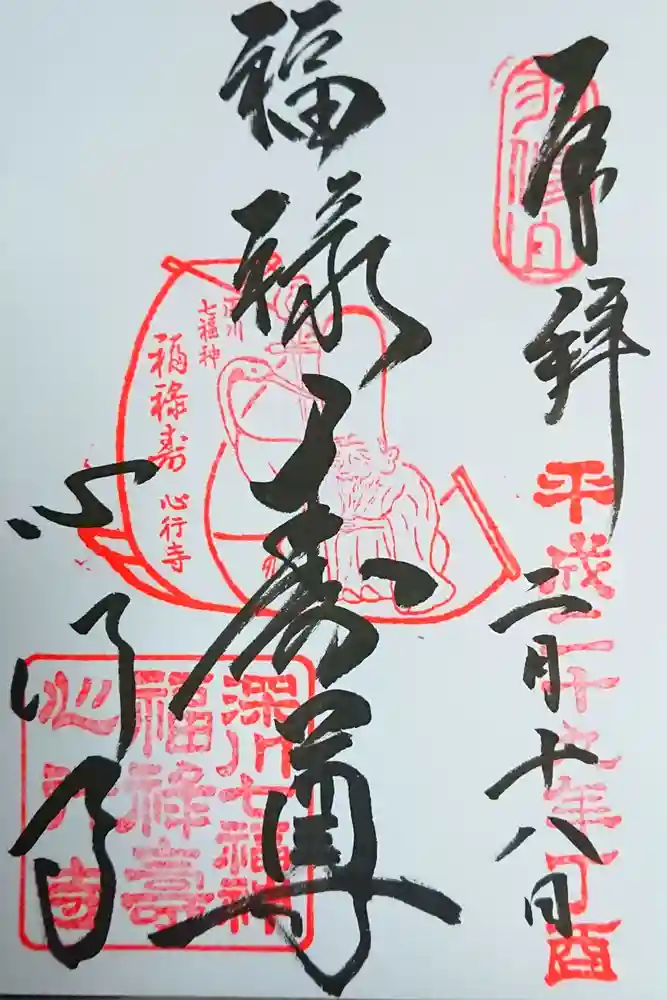 奉拝
平成二十九年丁酉
二月十八日
福禄寿尊
深川
七福神
福禄寿
心行寺
心行寺
深川七福神
福禄壽
心行寺